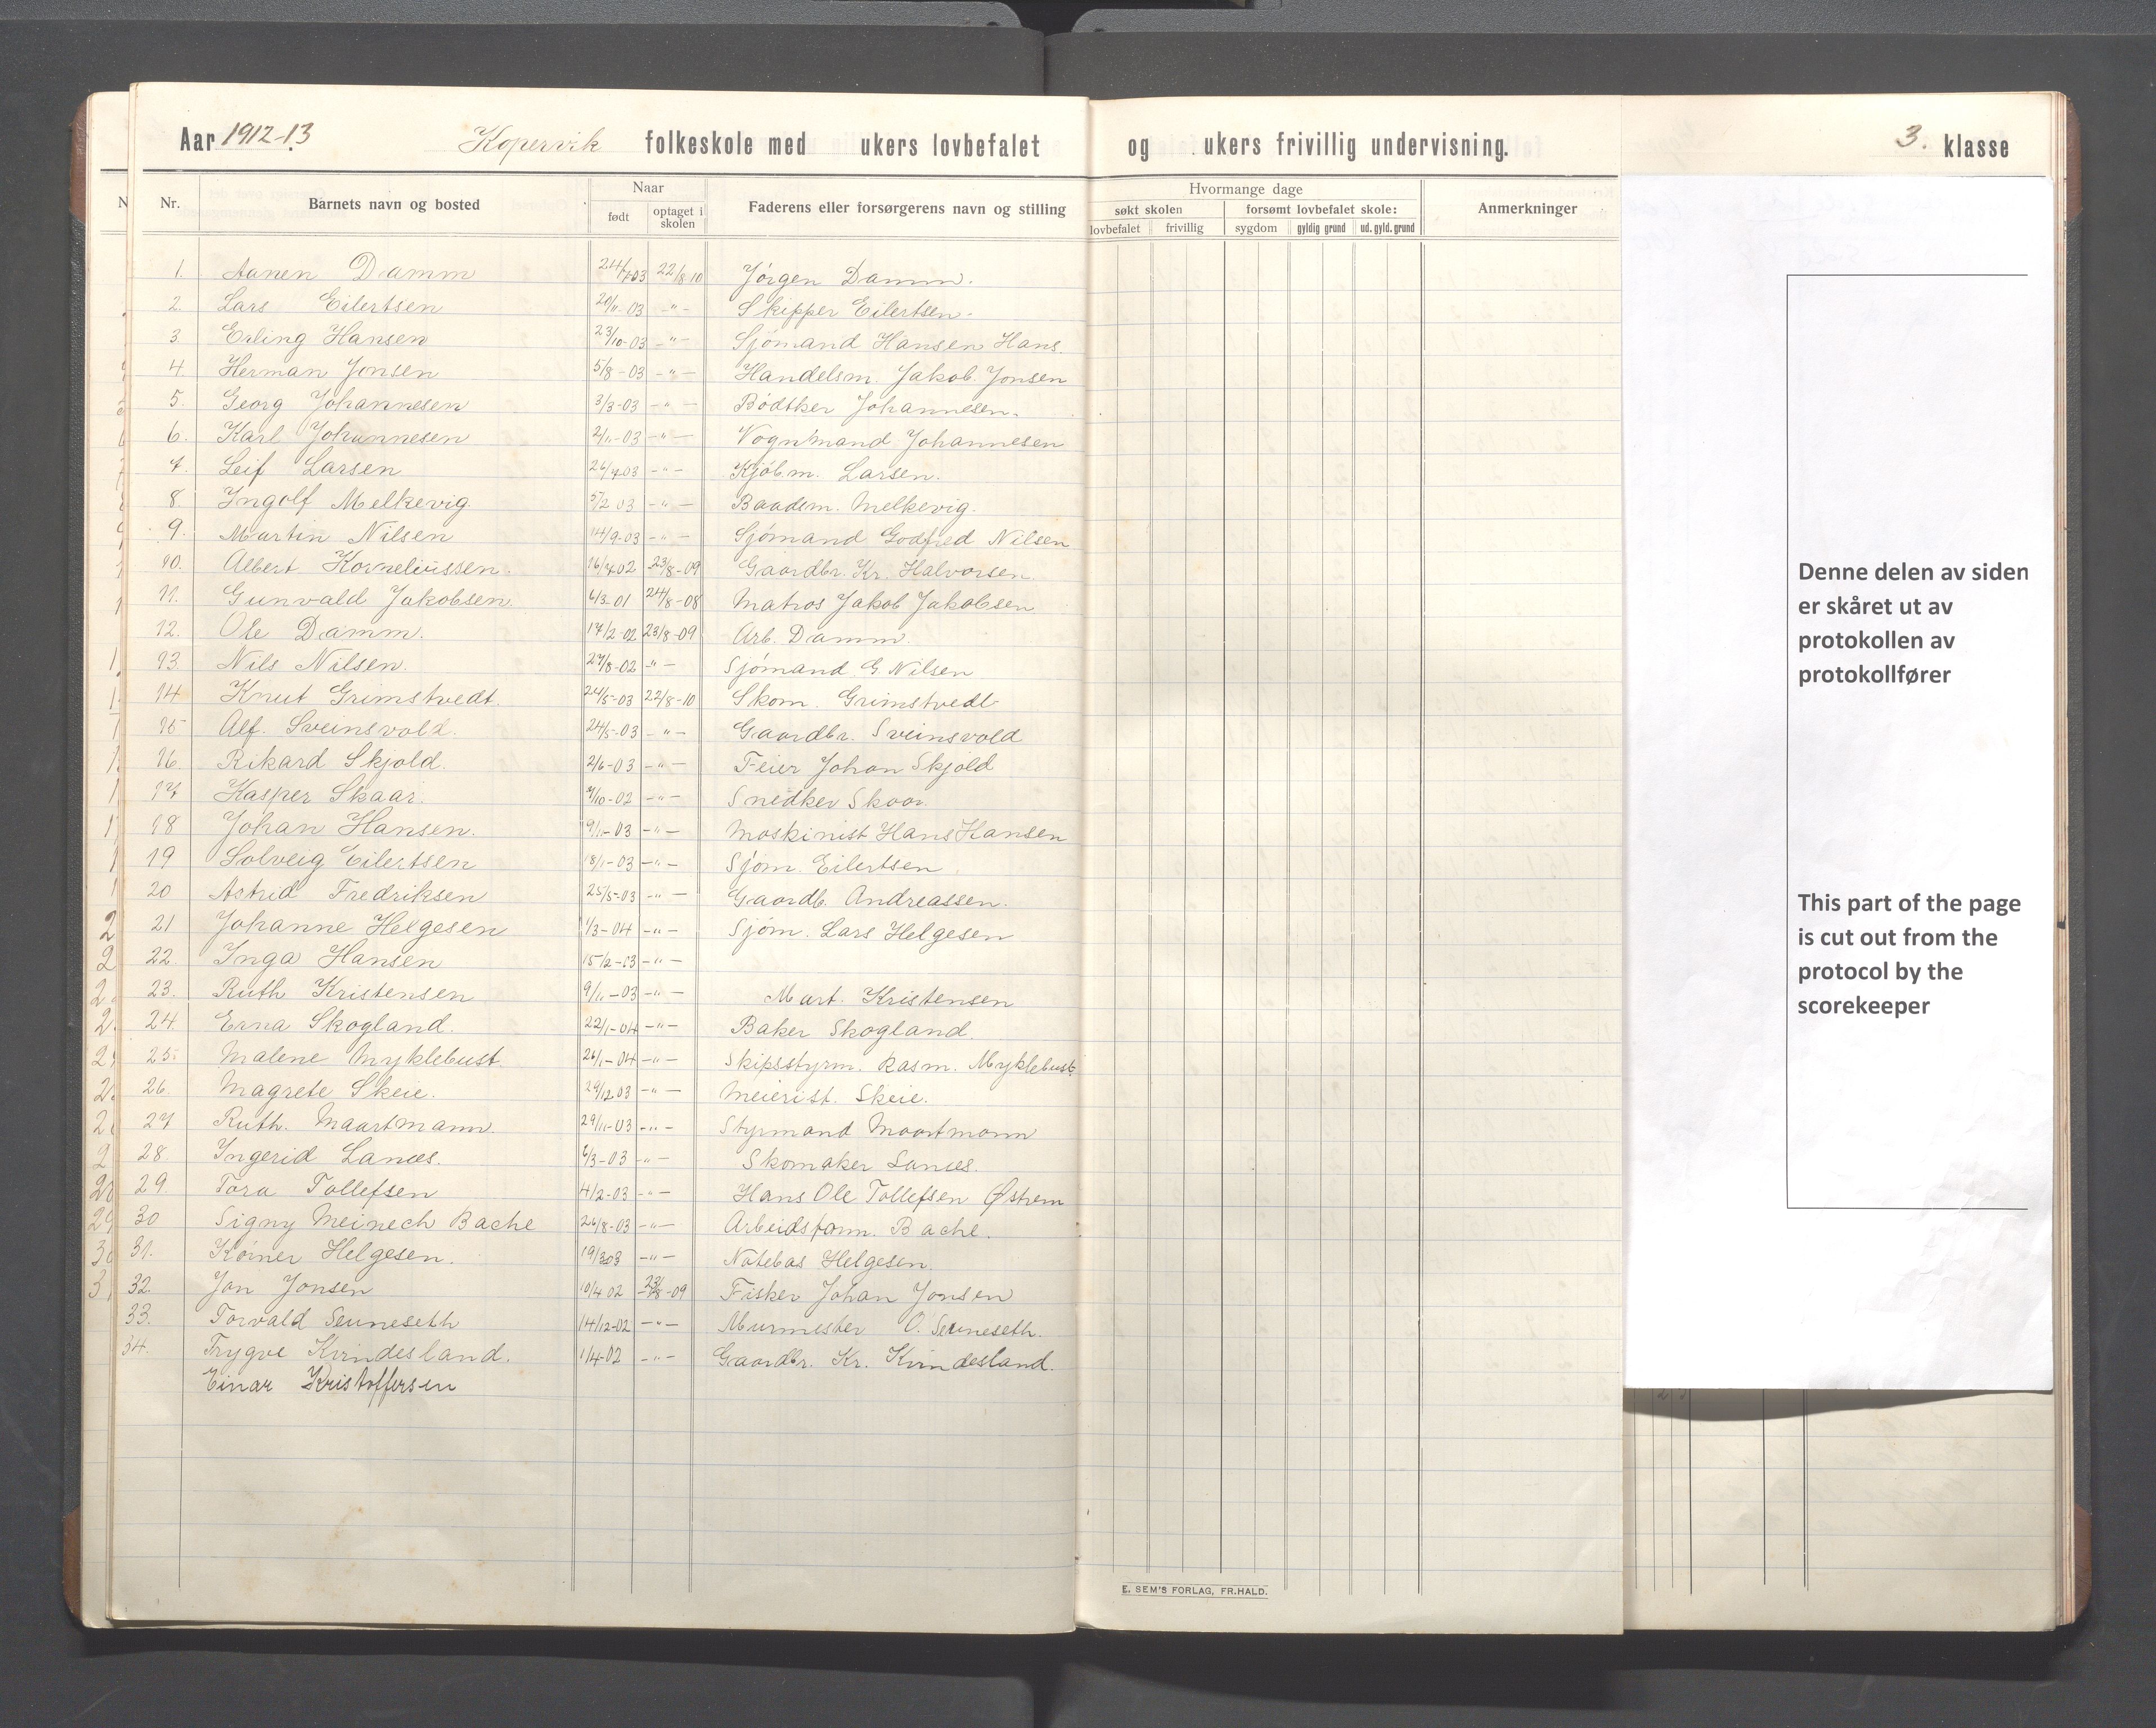 Aar 1912-13 Kopervik folkeskole med ukers lovbefalet og ukers frivillig undervisning. 3. klasse
Nr. Barnets navn og bosted Naar født optaget i skolen Faderens eller forsørgerens navn og stilling Hvormange dage søkt skolen lovbefalet frivillig forsømt lovbefalet skole: sygdom gyldig grund ud. gyld. grund Anmerkninger
1. Aanen Damm 24/7-03 22/8 10 Jørgen Damm.
2. Lars Eilertsen 20/11-03 -"- Skipper Eilertsen.
3. Erling Hansen 23/10-03 -"- Sjømand Hansen Hans.
4. Herman Jonsen 5/8-03 -"- Handelsm. Jakob Jonsen
5. Georg Johannesen 3/3-03 -"- Bødtker Johannesen.
6. Karl Johannesen 2/11-03 -"- Vognmand Johannesen
7. Leif Larsen 26/7 03 -"- Kjøbm. Larsen.
8. Ingolf Melkevig 5/2 03 -"- Baadsm. Melkevig.
9. Martin Nilsen 14/9-03 -"- Sjømand Godfred Nilsen
10. Albert Korneliussen. 16/7 02 23/8-09 Gaardbr. Kr. Halvorsen.
11. Gunvald Jakobsen. 6/3-01 24/8-08 Matros Jakob Jakobsen
12. Ole Damm. 17/2-02 23/8-09 Arb. Damm.
13. Nils Nilsen. 27/8-02 -"- Sjømand G. Nilsen
14 Knut Grimstvedt. 24/5-03 22/8-10 Skom. Grimstvedt
15 Alf. Sveinsvold. 24/5-03 -"- Gaardbr. Sveinsvold
16. Rikard Skjold. 2/6-03 -"- Feier Johan Skjold
17 Kasper Skaar. 7/10-02 -"- Snedker Skaar.
18 Johan Hansen. 9/11-03 -"- Maskinist Hans Hansen
19 Solveig Eilertsen 18/1-03 -"- Sjøm. Eilertsen
20 Astrid Fredriksen 25/5-03 -"- Gaardb. Andreassen.
21 Johanne Helgesen 1/3-04 -"- Sjøm. Lars Helgesen
22. Inga Hansen 15/2-03 -"-
23. Ruth Kristensen 9/11-03 -"- Mart. Kristensen
24. Erna Skogland. 22/1-04 -"- Baker Skogland.
25. Malene Myklebust. 26/1-04 -"- Skipsstyrm. Rasm. Myklebust.
26. Magrete Skeie. 29/12 03 -"- Meierist. Skeie.
27 Ruth. Maartmann. 29/11-03 -"- Styrmand Maartmann
28. Ingerid Lanæs. 6/3-03 -"- Skomaker Lanæs.
29. Tora Tollefsen 4/2-03 -"- Hans Ole Tollefsen Østrem
30 Signy Meinech Bache 26/8-03 -"- Arbeidsform. Bache.
31. Reiner Helgesen. 19/3 03 -"- Notebas Helgesen.
32. Jon Jonsen 10/4 02 23/8-09 Fisker Johan Jonsen
33. Torvald Seuneseth 14/12-02 -"- Murmester O. Seuneseth.
34. Trygve Kvindesland. 1/4-02 -"- Gaardbr. Kr. Kvindesland.
Einar Kristoffersen
E. SEM'S FORLAG, FR.HALD.
Denne delen av siden
er skåret ut av
protokollen av
protokollfører
This part of the page
is cut out from the
protocol by the
scorekeeper